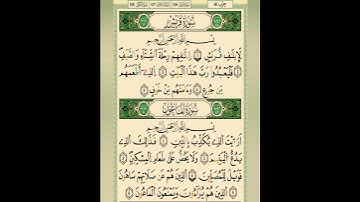 سُورَةُ قُرَيْشٍ
بِسْمِ اللَّهِ الرَّحْمَٰنِ الرَّحِيمِ
لِإِيلَافِ قُرَيْشٍ ﴿١﴾ إِيلَافِهِمْ رِحْلَةَ الشِّتَاءِ وَالصَّيْفِ ﴿٢﴾
فَلْيَعْبُدُوا رَبَّ هَٰذَا الْبَيْتِ ﴿٣﴾ الَّذِي أَطْعَمَهُم
مِّن جُوعٍ وَآمَنَهُم مِّنْ خَوْفٍ ﴿٤﴾
سُورَةُ الْمَاعُونِ
بِسْمِ اللَّهِ الرَّحْمَٰنِ الرَّحِيمِ
أَرَأَيْتَ الَّذِي يُكَذِّبُ بِالدِّينِ ﴿١﴾ فَذَٰلِكَ الَّذِي
يَدُعُّ الْيَتِيمَ ﴿٢﴾ وَلَا يَحُضُّ عَلَىٰ طَعَامِ الْمِسْكِينِ ﴿٣﴾
فَوَيْلٌ لِّلْمُصَلِّينَ ﴿٤﴾ الَّذِينَ هُمْ عَن صَلَاتِهِمْ سَاهُونَ
﴿٥﴾ الَّذِينَ هُمْ يُرَاءُونَ ﴿٦﴾ وَيَمْنَعُونَ الْمَاعُونَ ﴿٧﴾